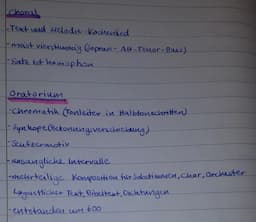 Choral
- Text und Melodie
- meist vierstimmig (Sopran - Alt - Tenor - Bass)
- Satz ist homophon
Oratorium
- Chromatik (Tonleiter in Halbtonschritten)
- Synkope (Betonungsverschiebung)
- Seufzermotiv
- Intervalle
- mehrteilige Komposition für Solostimmen, Chor, Orchester
Text, Bibeltext, Dichtungen
- entstanden um 600